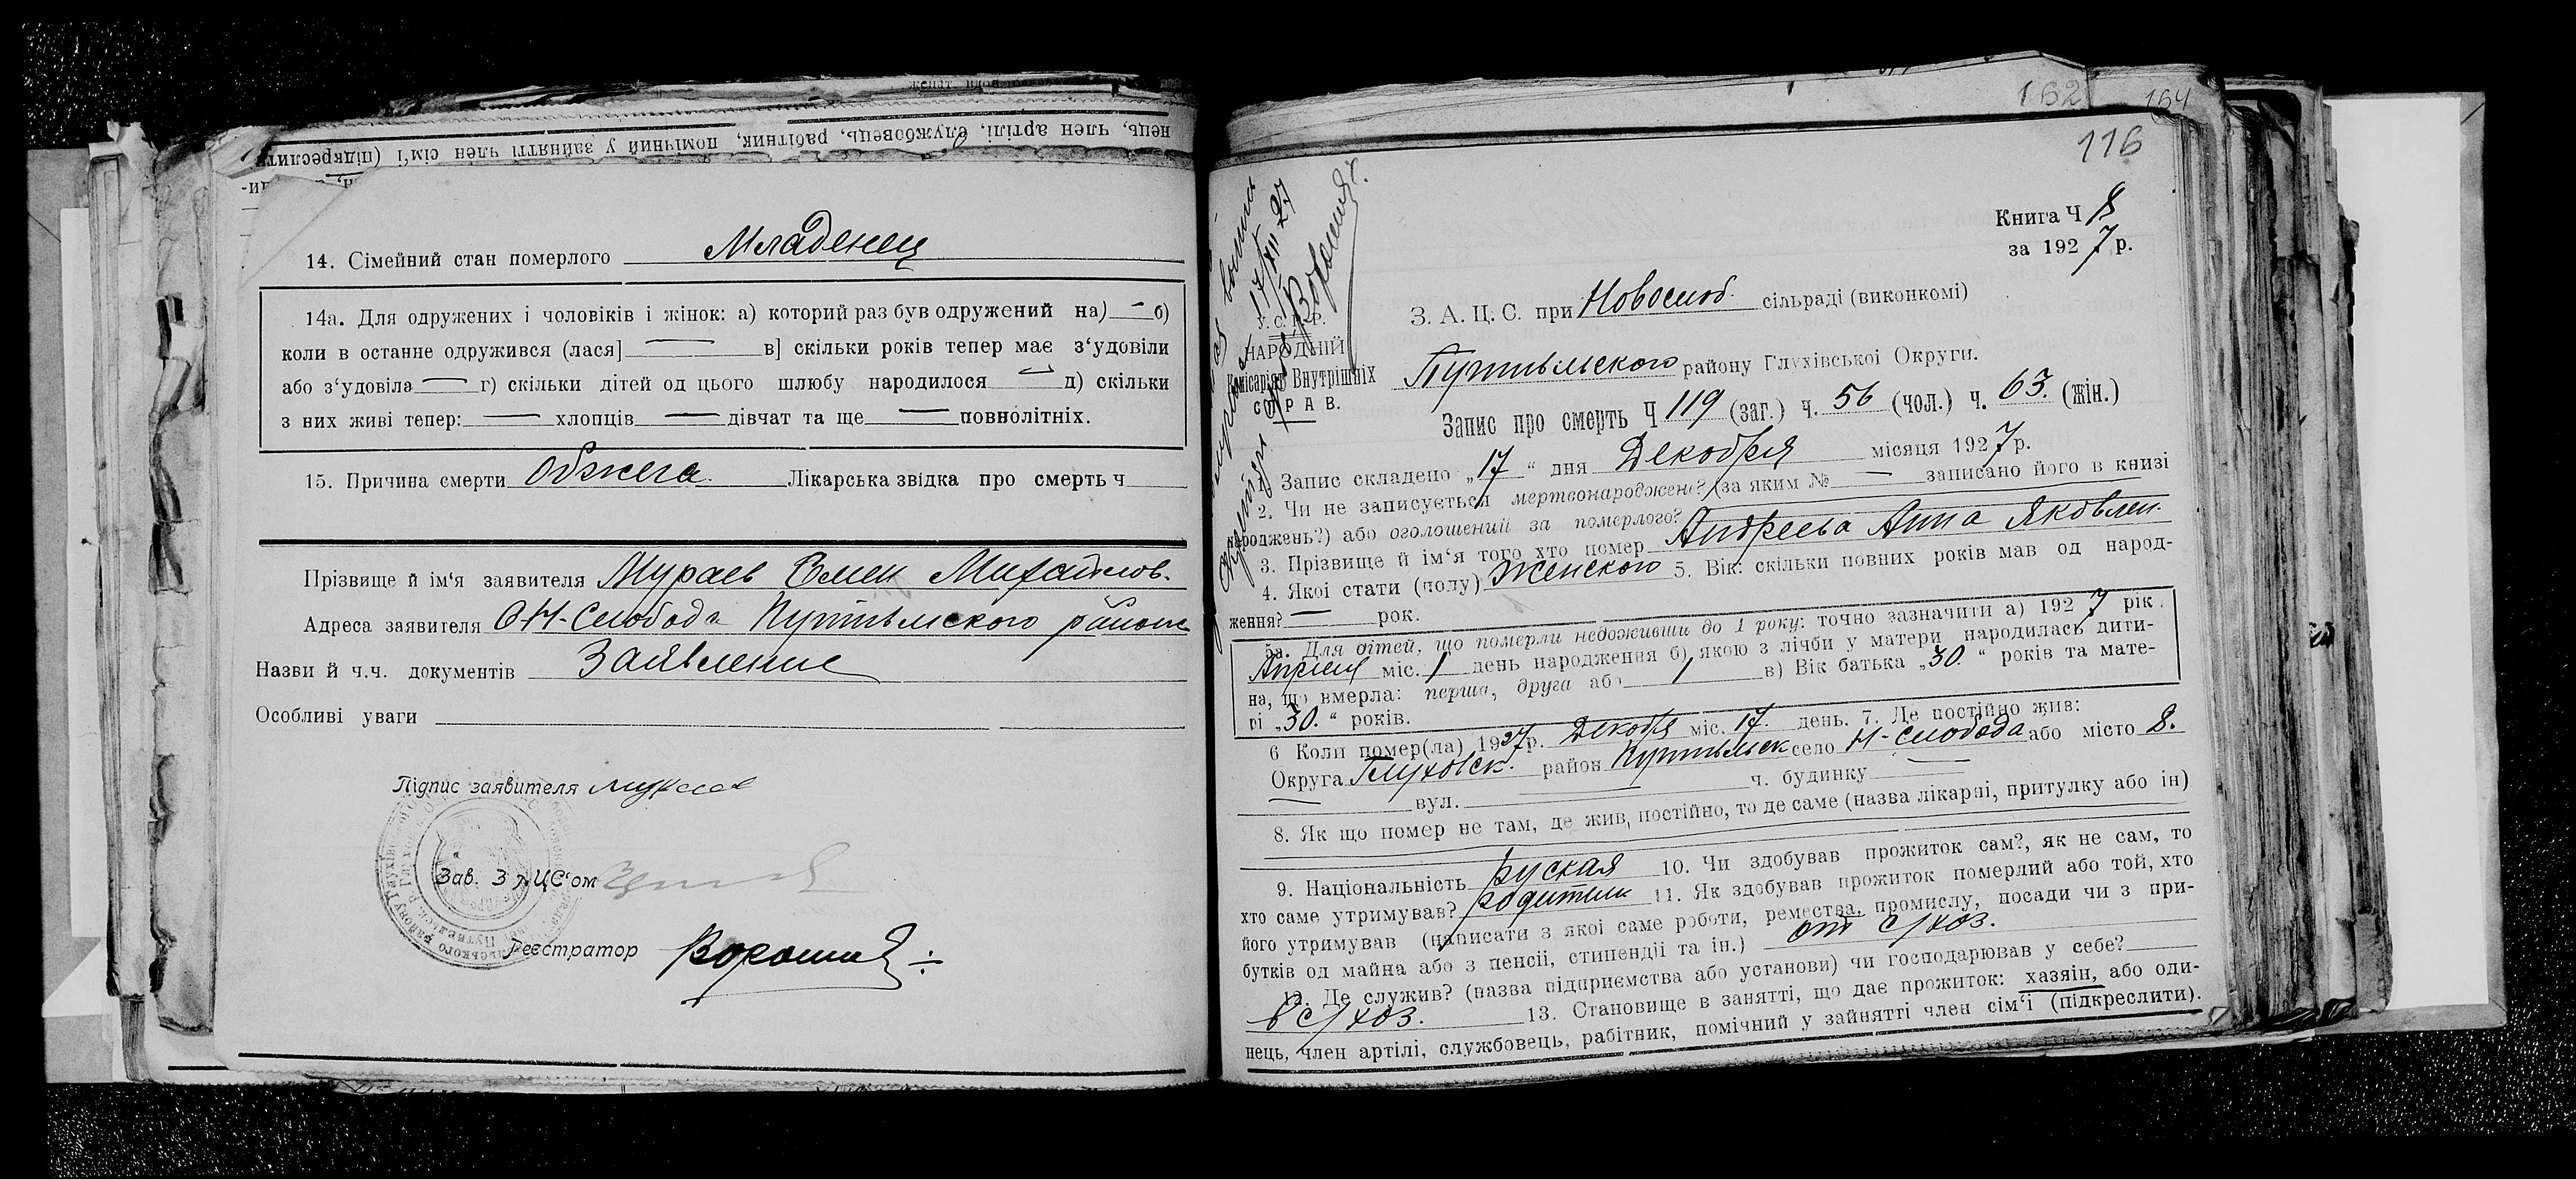 нець, член артілі, службовець, рабітник, помічний у зайнятті член сім'ї (підкреслити)
14. Сімейний стан померлого Младенец
14а. Для одружених і чоловіків і жінок: а) которий раз був одружений на) — б)
коли в останне одружився (лася] — в] скільки років тепер має з'удовіли
або з'удовіла — г) скільки дітей од цього шлюбу народилося — д) скільки
з них живі тепер: — хлопців — дівчат та ще — повнолітніх.
15. Причина смерти Обжега. Лікарська звідка про смерть ч
Прізвище й ім'я заявителя Мураев Емен Михайлов.
Адреса заявителя Н-Слобода Путивльского района
Назви й ч.ч. документів Заявление
Особливі уваги
Підпис заявителя Мураев
Зав. ЗАЦС'ом
Реєстратор
162
164
116
Книга Ч 8
за 1927 р.
17/XII 27
У.С.Р.Р.
НАРОДНІЙ
Комісаріят Внутрішніх
СПРАВ.
З. А. Ц. С. при Новослоб. сільраді (виконкомі)
Путивльского району Глухівської Округи.
Запис про смерть Ч 119 (заг.) ч. 56 (чол.) ч. 63. (жін.)
1. Запис складено „17" дня Декабря місяця 1927 р.
2. Чи не записується мертвонароджене? (за яким № — записано його в книзі
народжень?) або оголошений за померлого?
3. Прізвище й ім'я того хто помер Андреева Анна Яковлев.
4. Якої стати (полу) Женского 5. Вік: скільки повних років мав од народ-
ження? — рок.
5а. Для дітей, що померли недоживши до 1 року: точно зазначити а) 1927 рік.
Апреля міс. 1 день народження б) якою з лічби у матери народилась дити-
на, що вмерла: перша, друга або 1 в) Вік батька „30." років та мате-
рі „30." років.
6 Коли помер(ла) 1927 р. Декабря міс. 17. день. 7. Де постійно жив:
Округа Глуховск. район Путивльск село Н-Слобода або місто 8.
— вул. ч. будинку —
8. Як що помер не там, де жив, постійно, то де саме (назва лікарні, притулку або ін)
9. Національність руская 10. Чи здобував прожиток сам?, як не сам, то
хто саме утримував? родители 11. Як здобував прожиток померлий або той, хто
його утримував (написати з якої саме роботи, ремества, промислу, посади чи з при-
бутків од майна або з пенсії, стипендії та ін.) от с/хоз.
12. Де служив? (назва підприємства або установи) чи господарював у себе?
в с/хоз. 13. Становище в занятті, що дає прожиток: хазяїн, або оди-
нець, член артілі, службовець, рабітник, помічний у зайнятті член сім'ї (підкреслити).